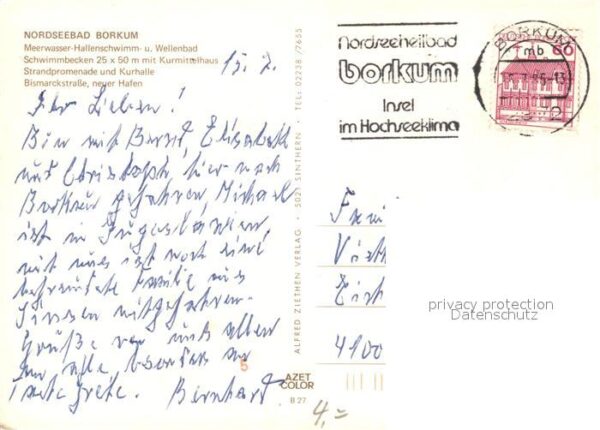 NORDSEEBAD BORKUM
Meerwasser-Hallenschwimm- u. Wellenbad
Schwimmbecken 25 x 50 m mit Kurmittelhaus
Strandpromenade und Kurhalle
Bismarckstraße, neuer Hafen
15. 7.
Ihr Lieben!
Bin mit Bernd, Elisabeth
und Christoph, hier nach
Borkum gefahren, Michael
ist in Jugoslawien,
mit uns ist noch eine
befreundete Familie aus
mitgefahren.
Grüße von uns allen
an alle, besonders an
Tante Grete. Bernhard.
ALFRED ZIETHEN VERLAG · 5021 SINTHERN · TEL: 02238 /7655
5
AZET
COLOR
B 27
Nordseeheilbad
borkum
Insel
im Hochseeklima
BORKUM
mb
60
2
4100
privacy protection
Datenschutz
4,=